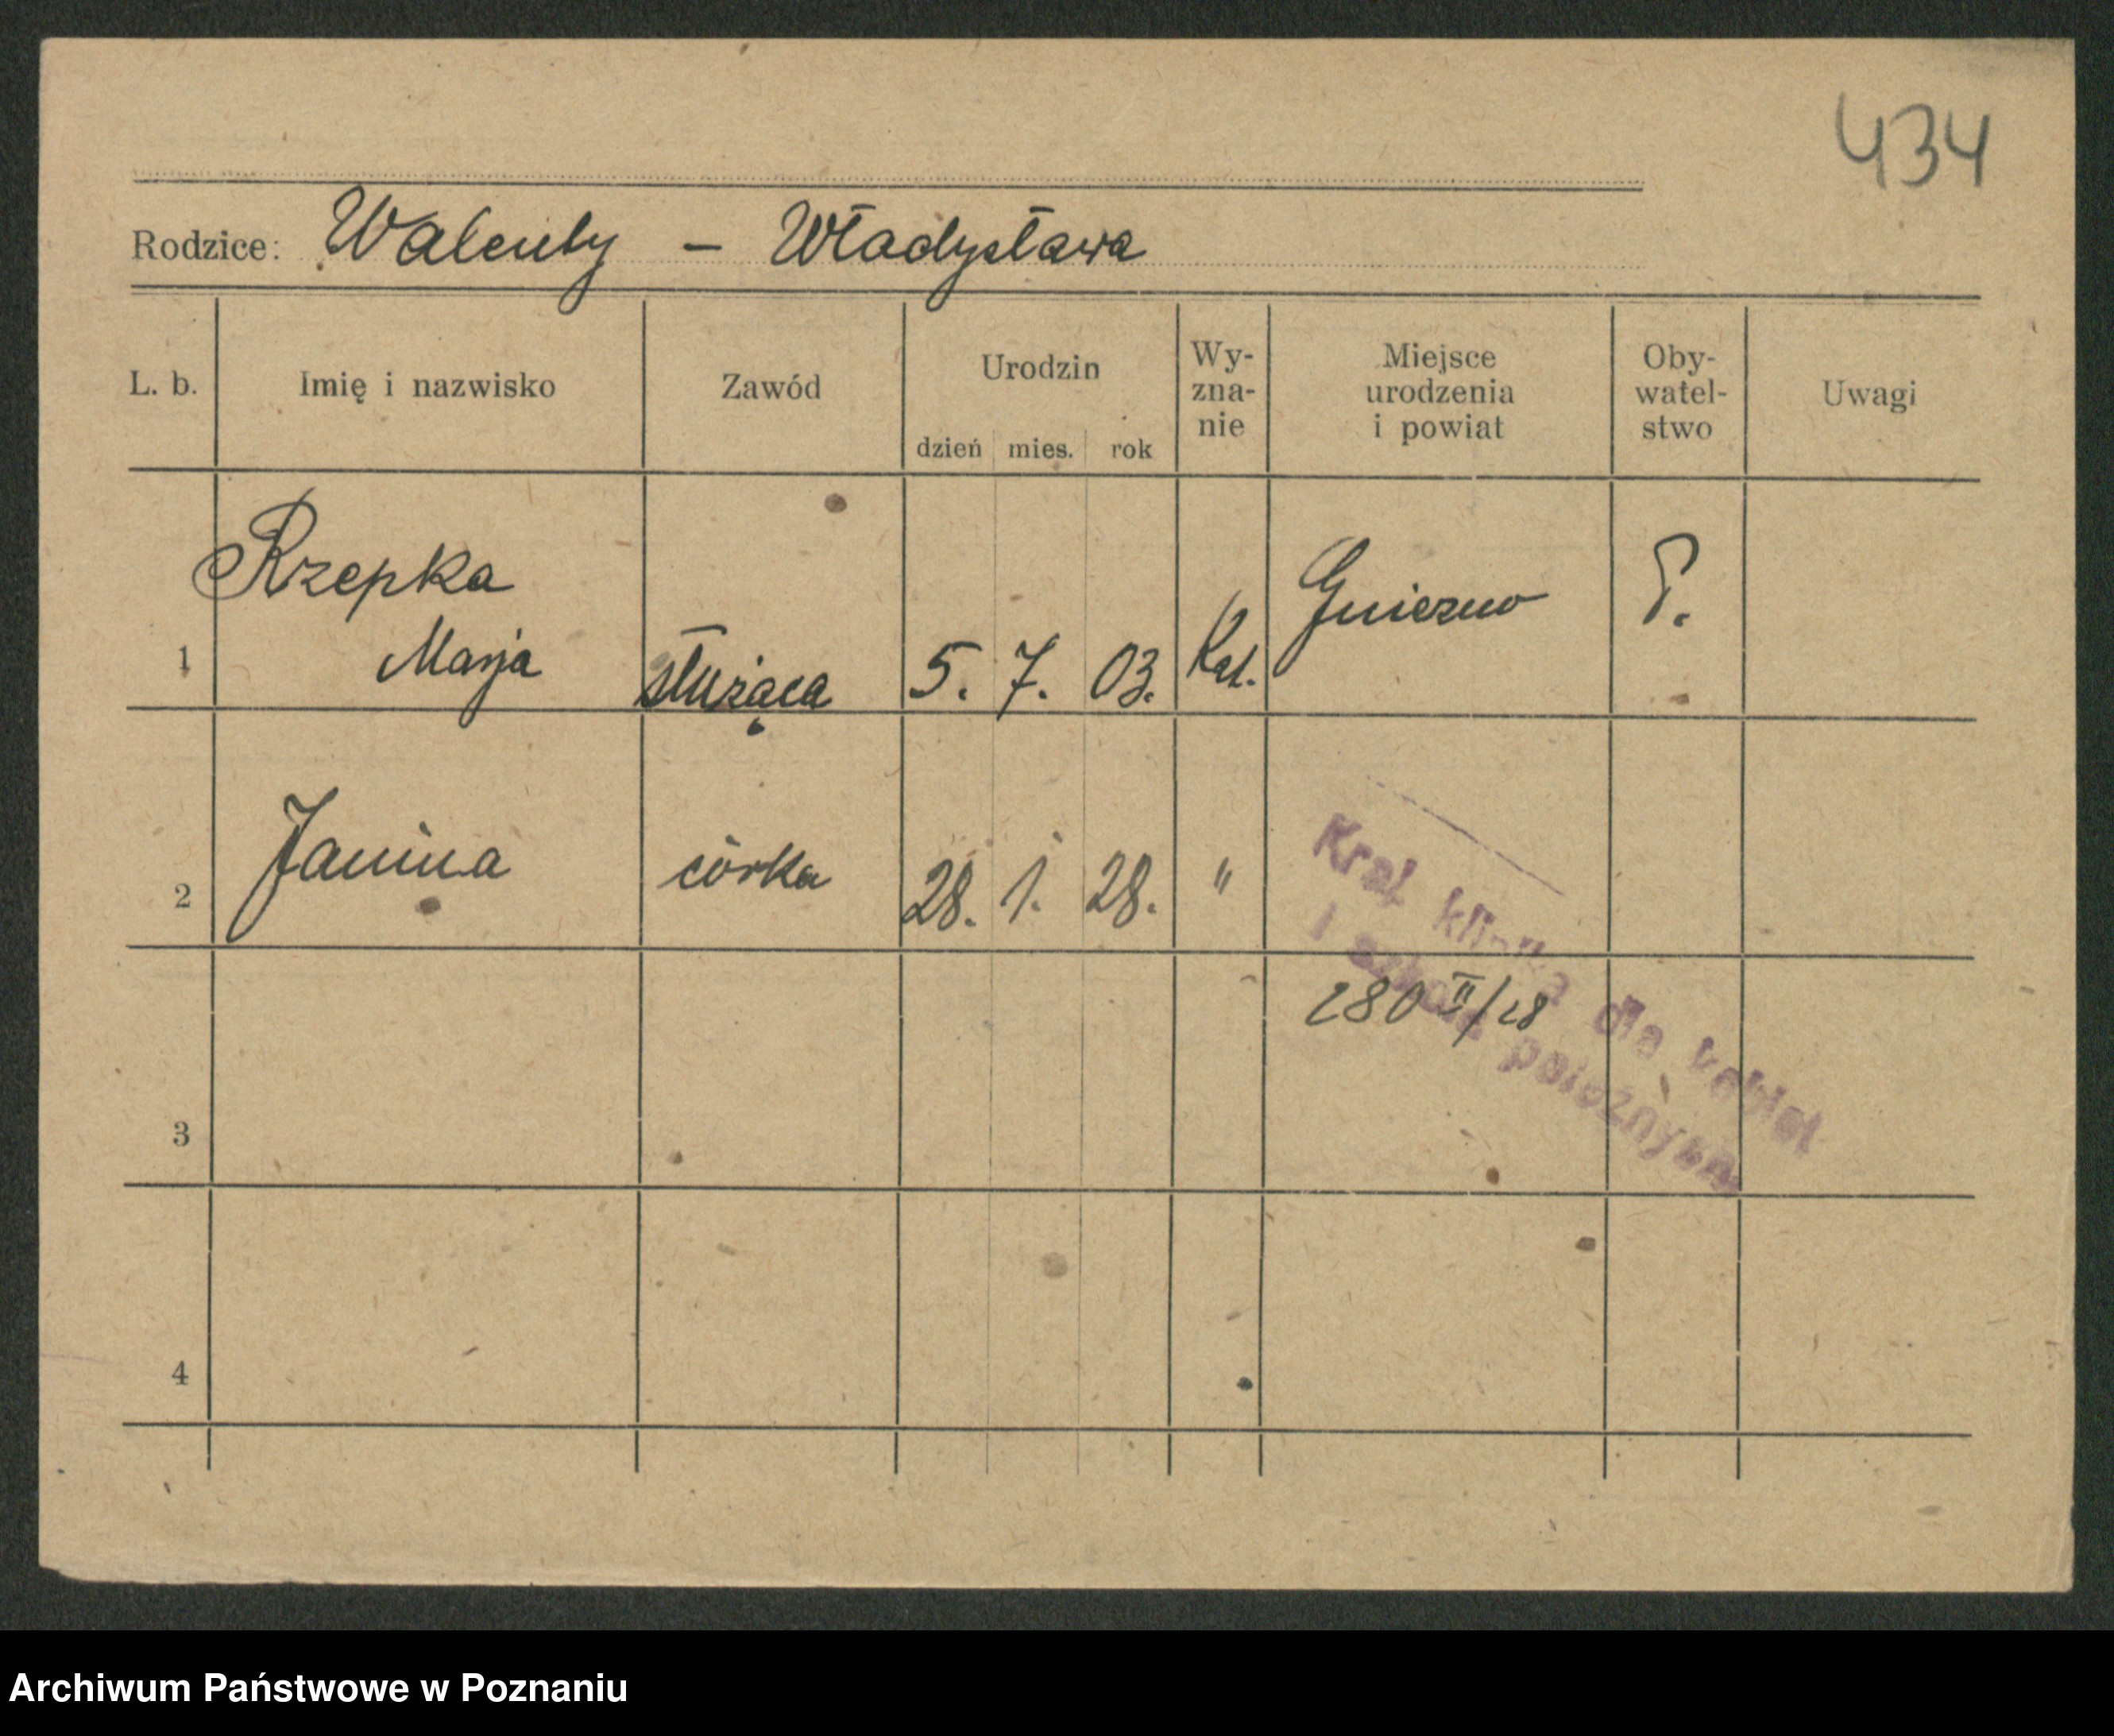 434
Rodzice: Walenty – Władysława
L. b. Imię i nazwisko Zawód Urodzin dzień mies. rok Wy-zna-nie Miejsce urodzenia i powiat Oby-watel-stwo Uwagi
Rzepka Gniezno P.
1 Marja służąca 5. 7. 03. Kat.
2 Janina córka 28. 1. 28. "
Kraj. klinika dla kobiet
i szkoła położnych
280 II/28
3
4
Archiwum Państwowe w Poznaniu